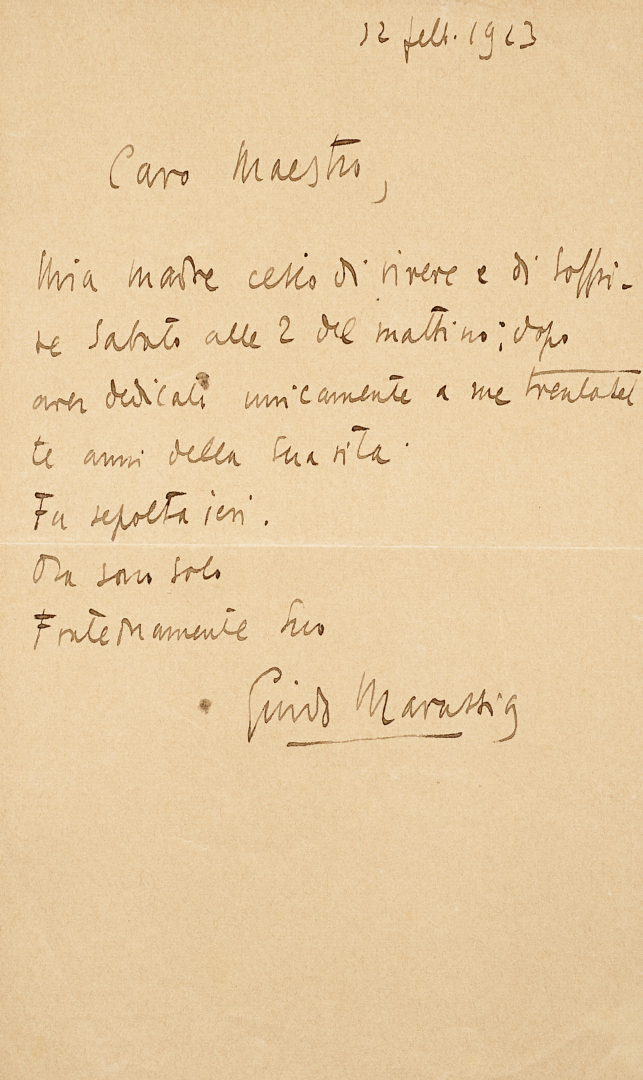 12 febb. 1923
Caro Maestro,
Mia madre cessò di vivere e di soffri-
re Sabato alle 2 del mattino; dopo
aver dedicati unicamente a me trentaset
te anni della sua vita.
Fu sepolta ieri.
Ora sono solo
Fraternamente Suo
Guido Marussig